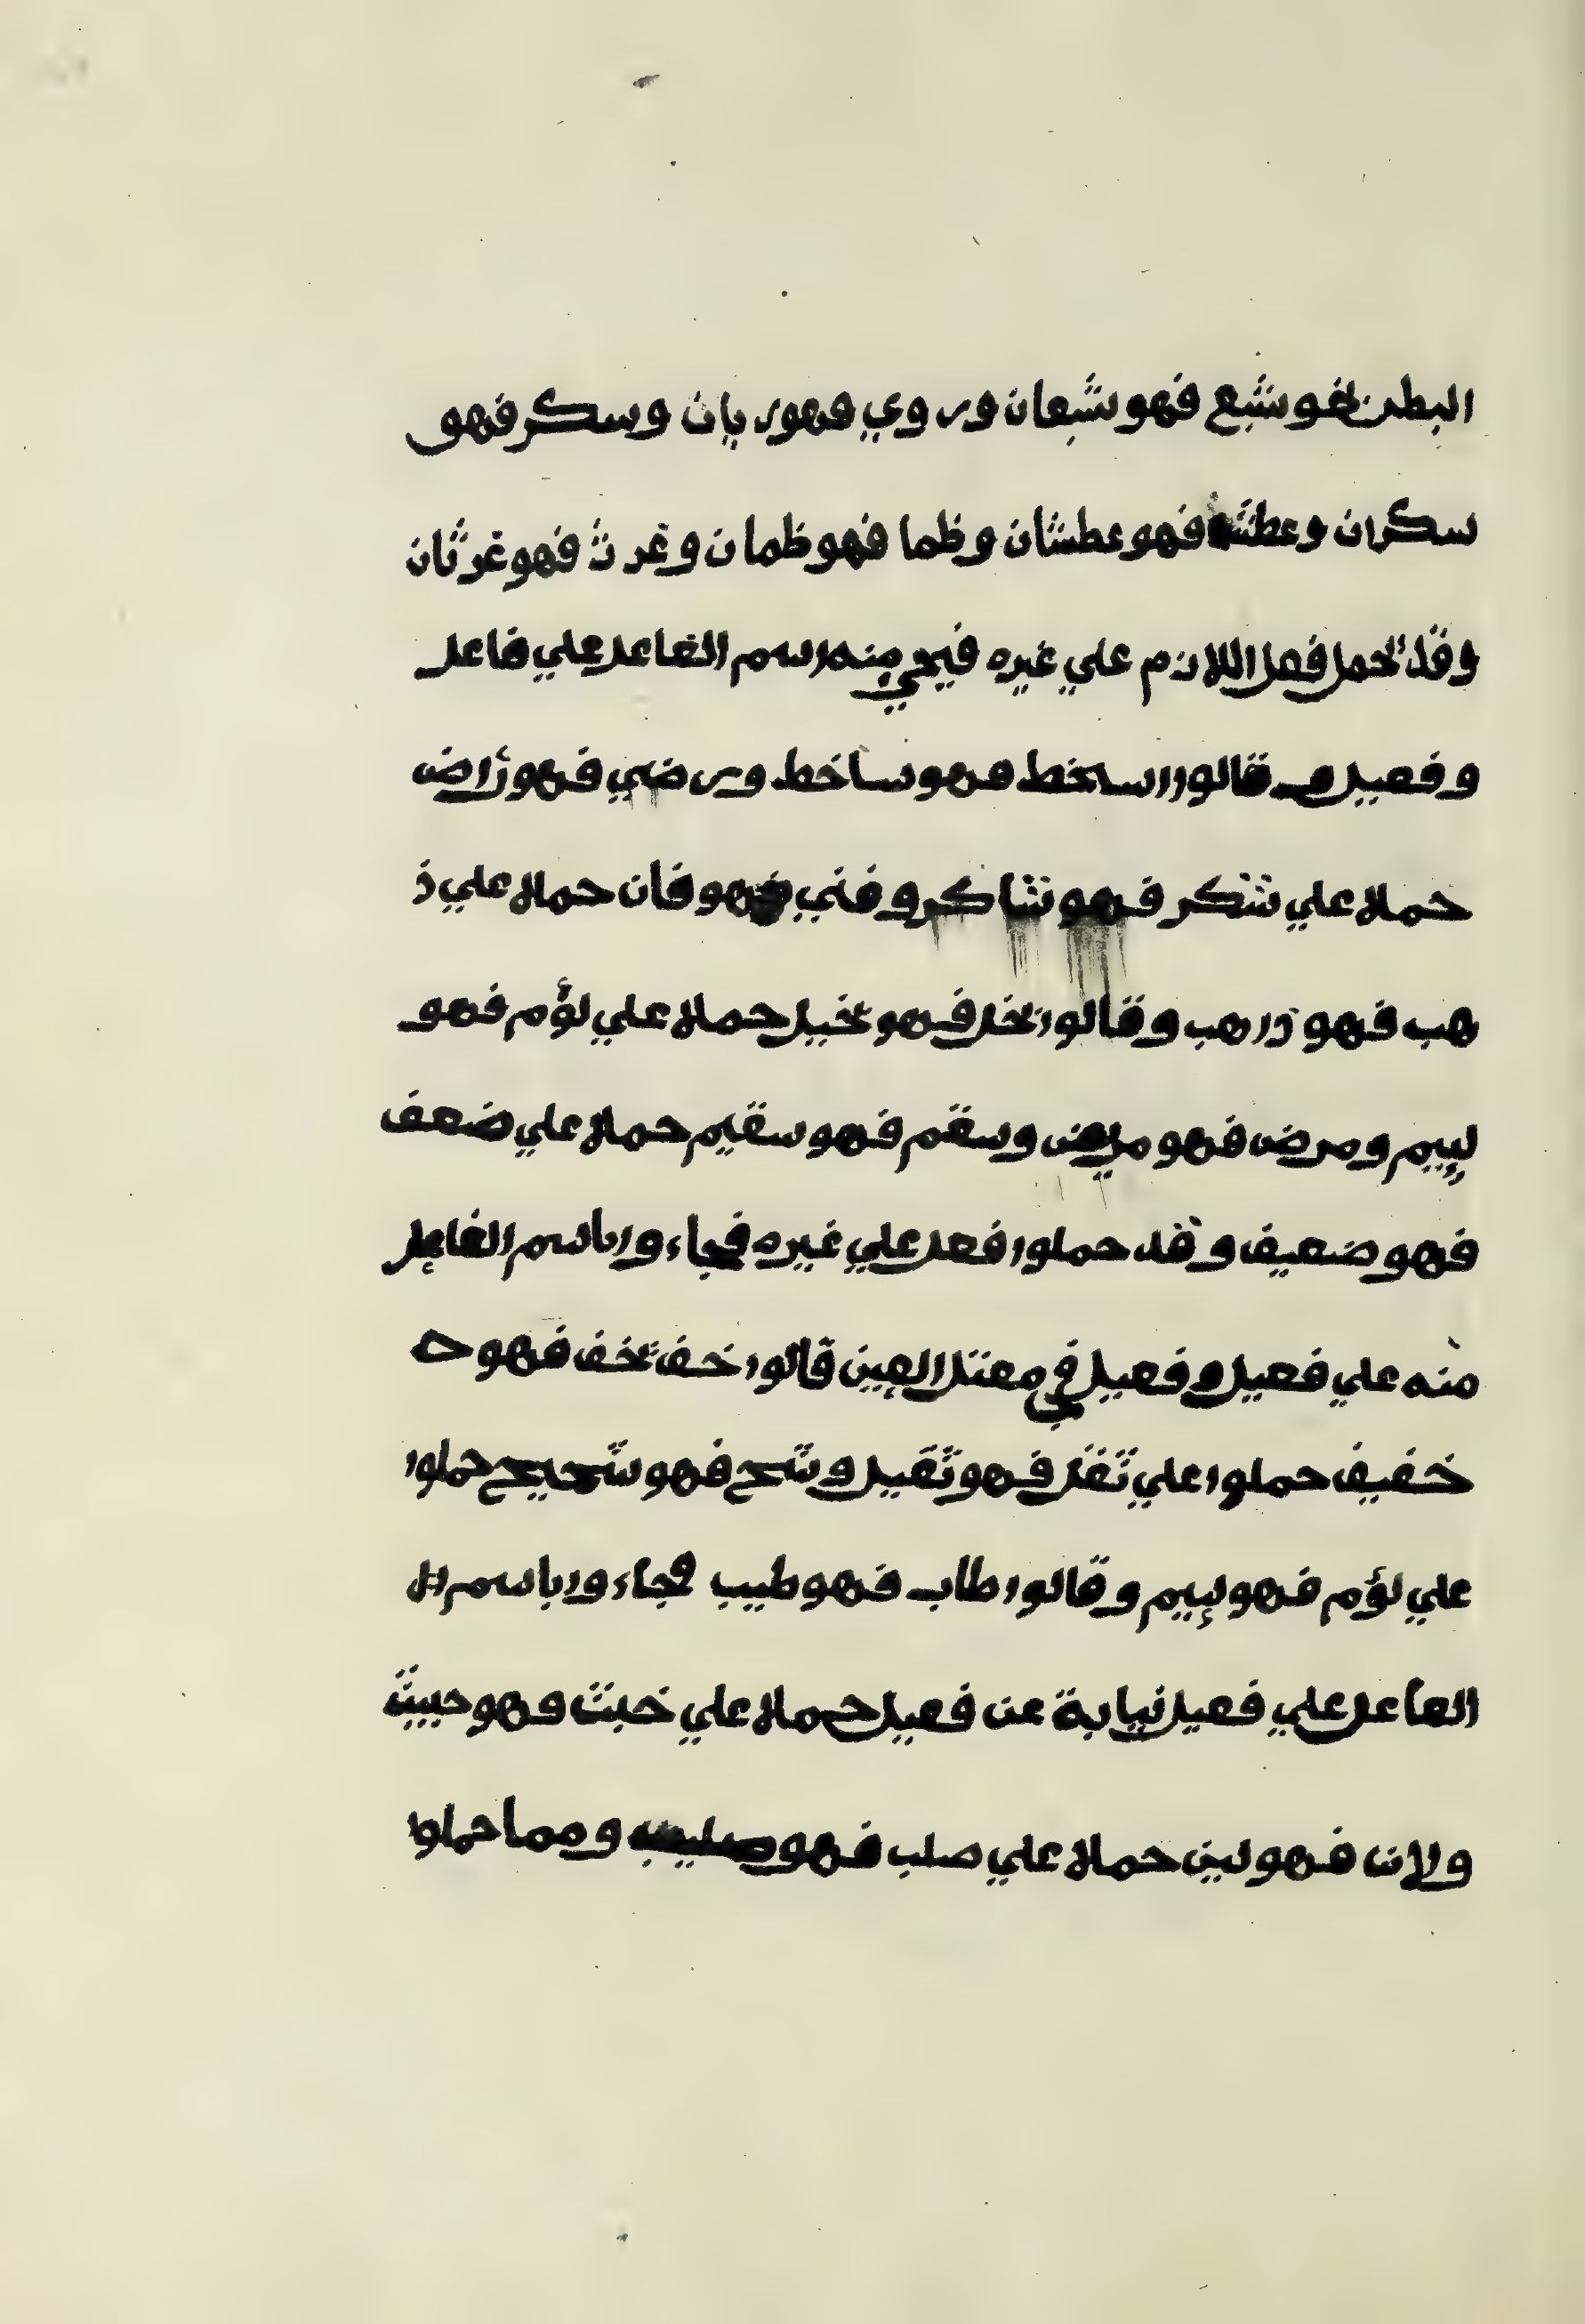 البطن نحو شبع فهو شبعان وروي فهو ريان وسكر فهو
سكران وعطش فهو عطشان وظما فهو ظمان وغرث فهو غرثان
وقد يحمل فعل اللازم علي غيره فيجي منه اسم الفاعل علي فاعل
وفعيل و قالوا سخط فهو ساخط ورضي فهو راض
حملا علي شكر فهو شاكر وفني فهو فان حملا علي ذ
هب فهو ذاهب وقالوا بخل فهو بخيل حملا علي لؤم فهو
لييم ومرض فهو مريض وسقم فهو سقيم حملا علي ضعف
فهو ضعيف وقد حملوا فعل علي غيره فجاءوا باسم الفاعل
منه علي فعيل وفيعل في معتل العين قالوا خف يخف فهو خ
خفيف حملوا علي ثقل فهو ثقيل وشح فهو شحيح حملوا
علي لؤم فهو لييم وقالوا طاب فهو طيب فجاءوا باسم ال
الفاعل علي فعيل نيابة عن فعيل حملا علي خبث فهو خبيث
ولان فهو لين حملا علي صلب فهو صليب ومما حملوا